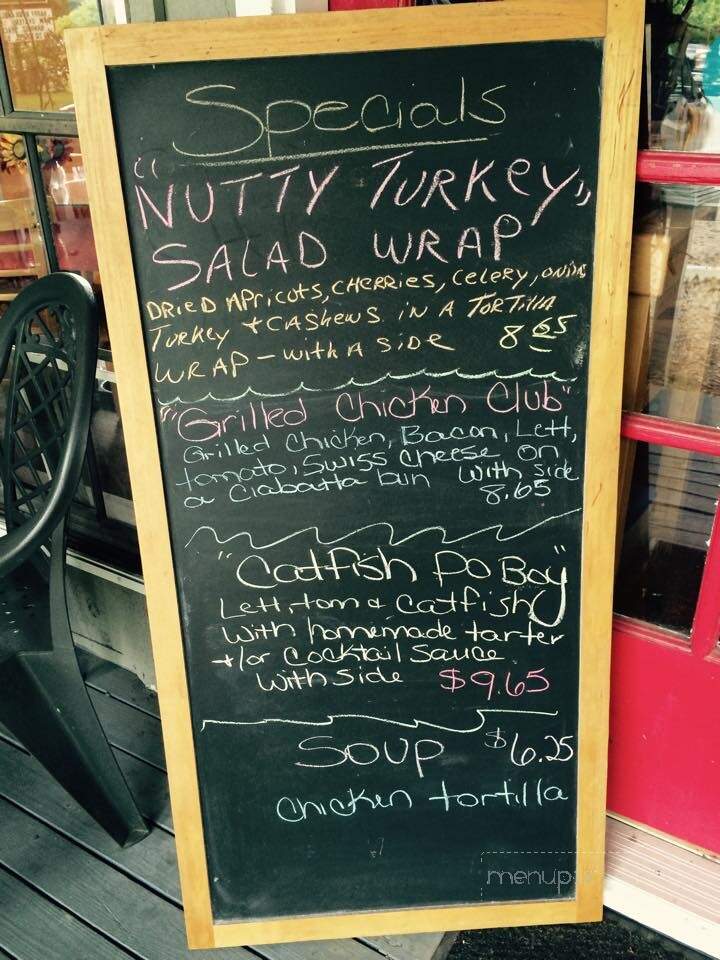 Specials
"NUTTY TURKEY"
SALAD WRAP
DRIED APRICOTS, CHERRIES, CELERY, ONION
TURKEY + CASHEWS IN A TORTILLA
WRAP - WITH A SIDE 8 65
"Grilled Chicken Club"
Grilled Chicken, Bacon, Lett,
tomato, Swiss cheese on
a Ciabatta bun with side
8.65
"Catfish Po Boy"
Lett, tom + catfish
with homemade tarter
+/or cocktail sauce
with side $9.65
SOUP $6.25
chicken tortilla
menupix